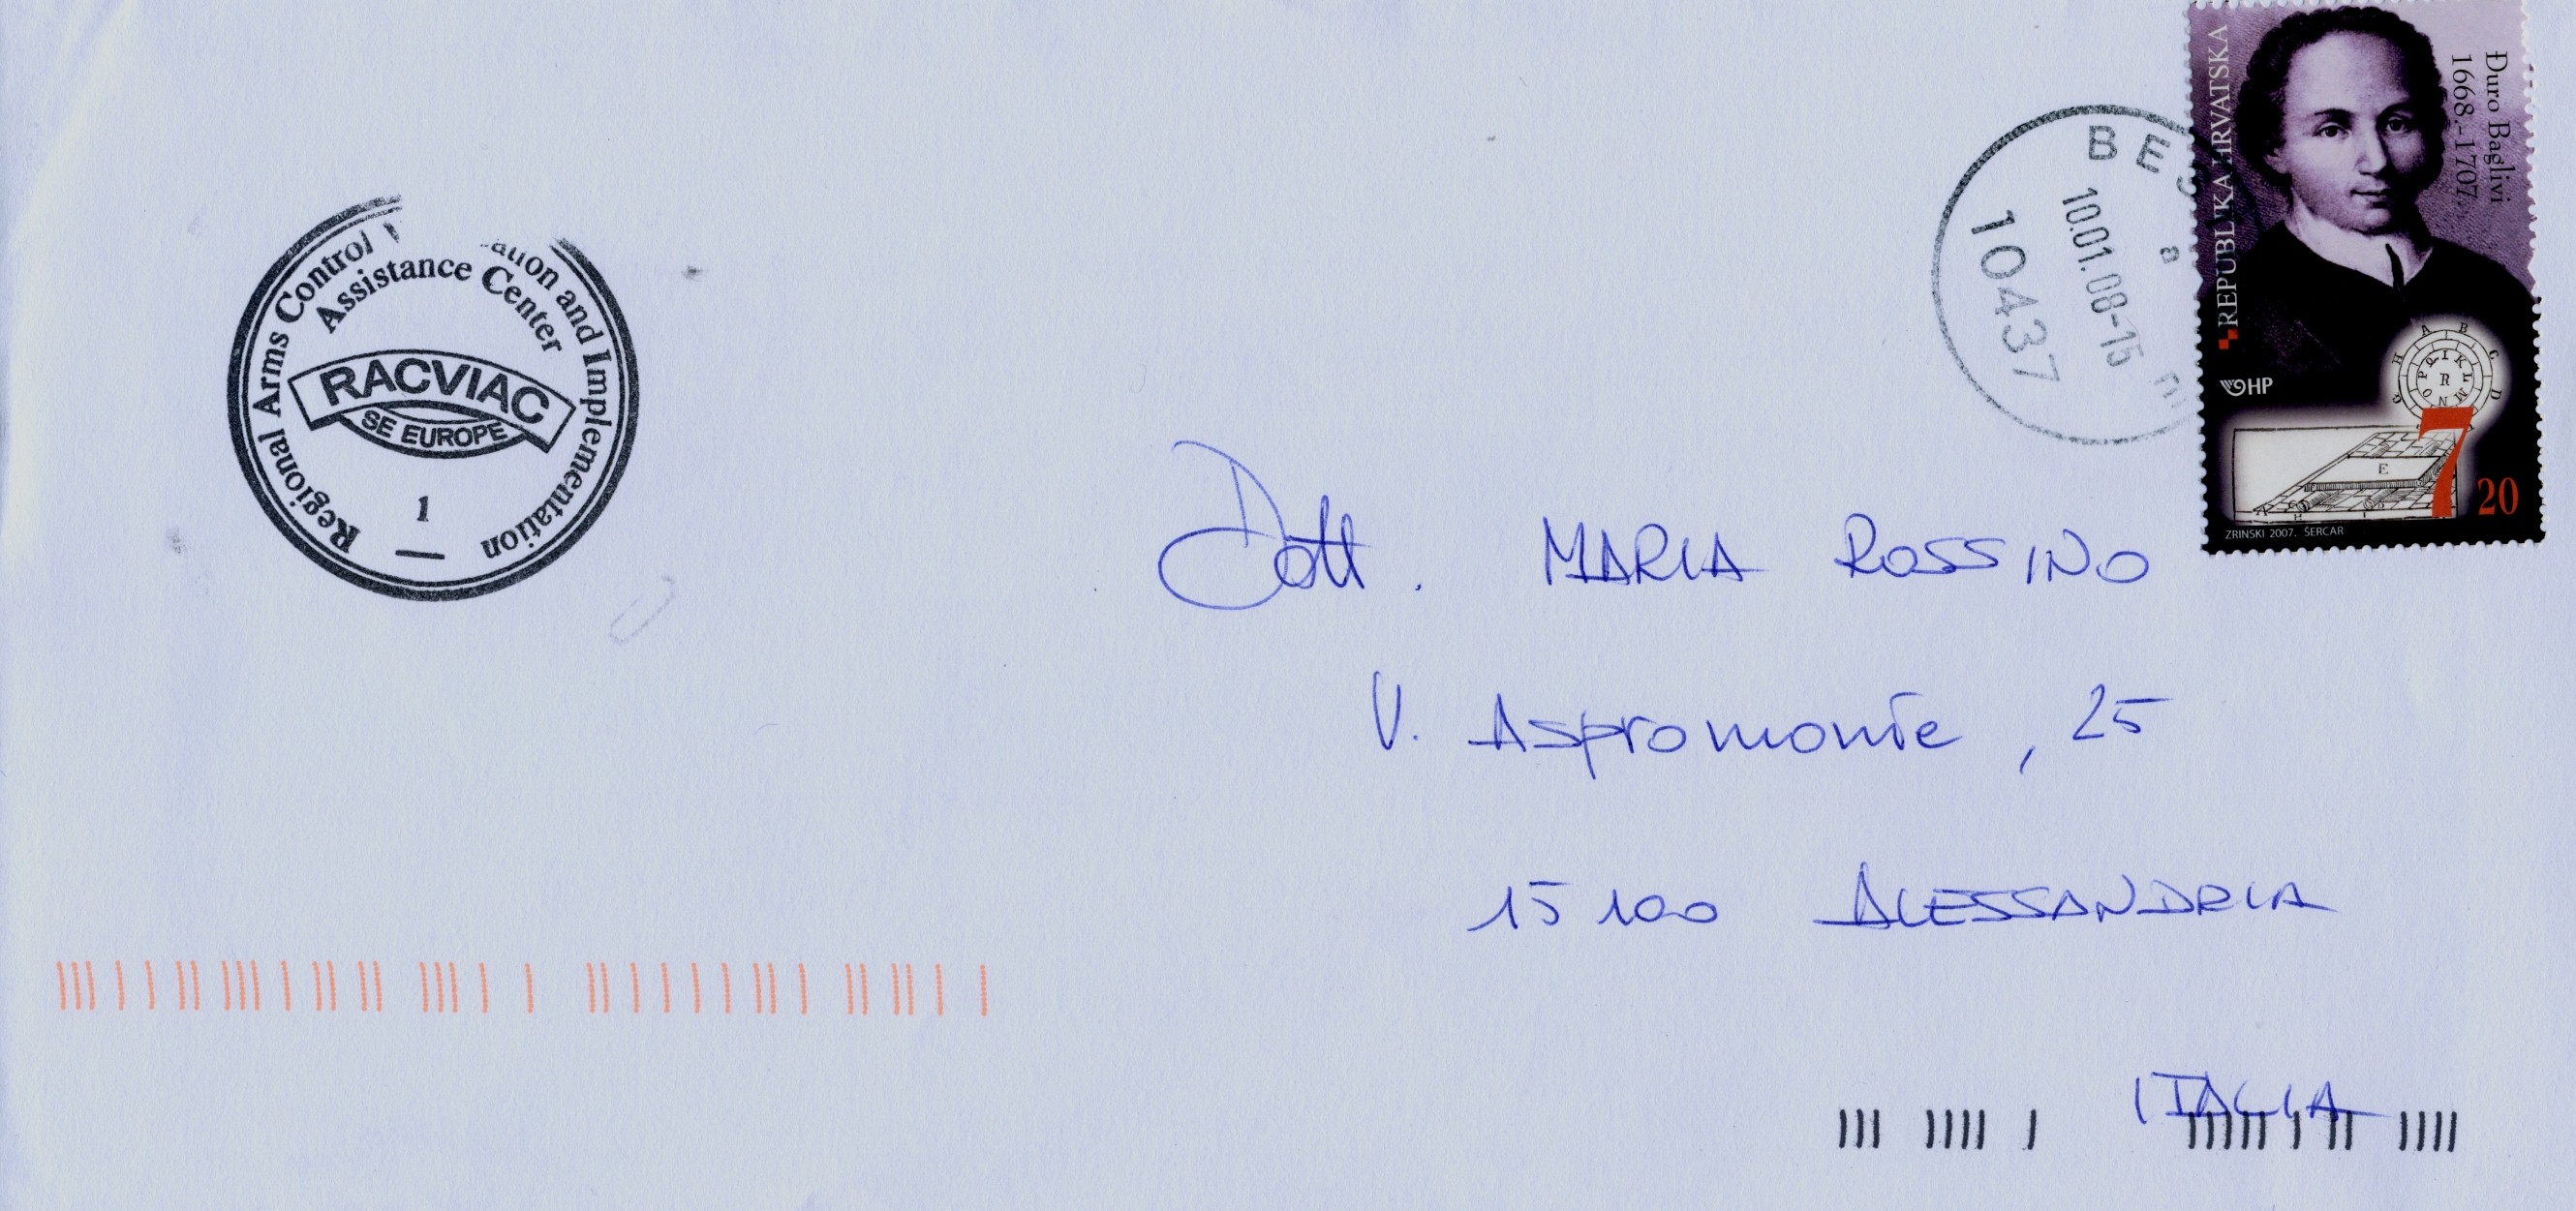 Regional Arms Control ation and Implementation
Assistance Center
RACVIAC
SE EUROPE
1
BES
10.01.08-15
a
10437
REPUBLIKA HRVATSKA
Đuro Baglivi
1668.-1707.
HP
A B C D G H
P Q I K L M N O
R
E
7 20
ZRINSKI 2007. ŠERCAR
Dott. MARIA ROSSINO
V. Aspromonte, 25
15100 ALESSANDRIA
ITALIA